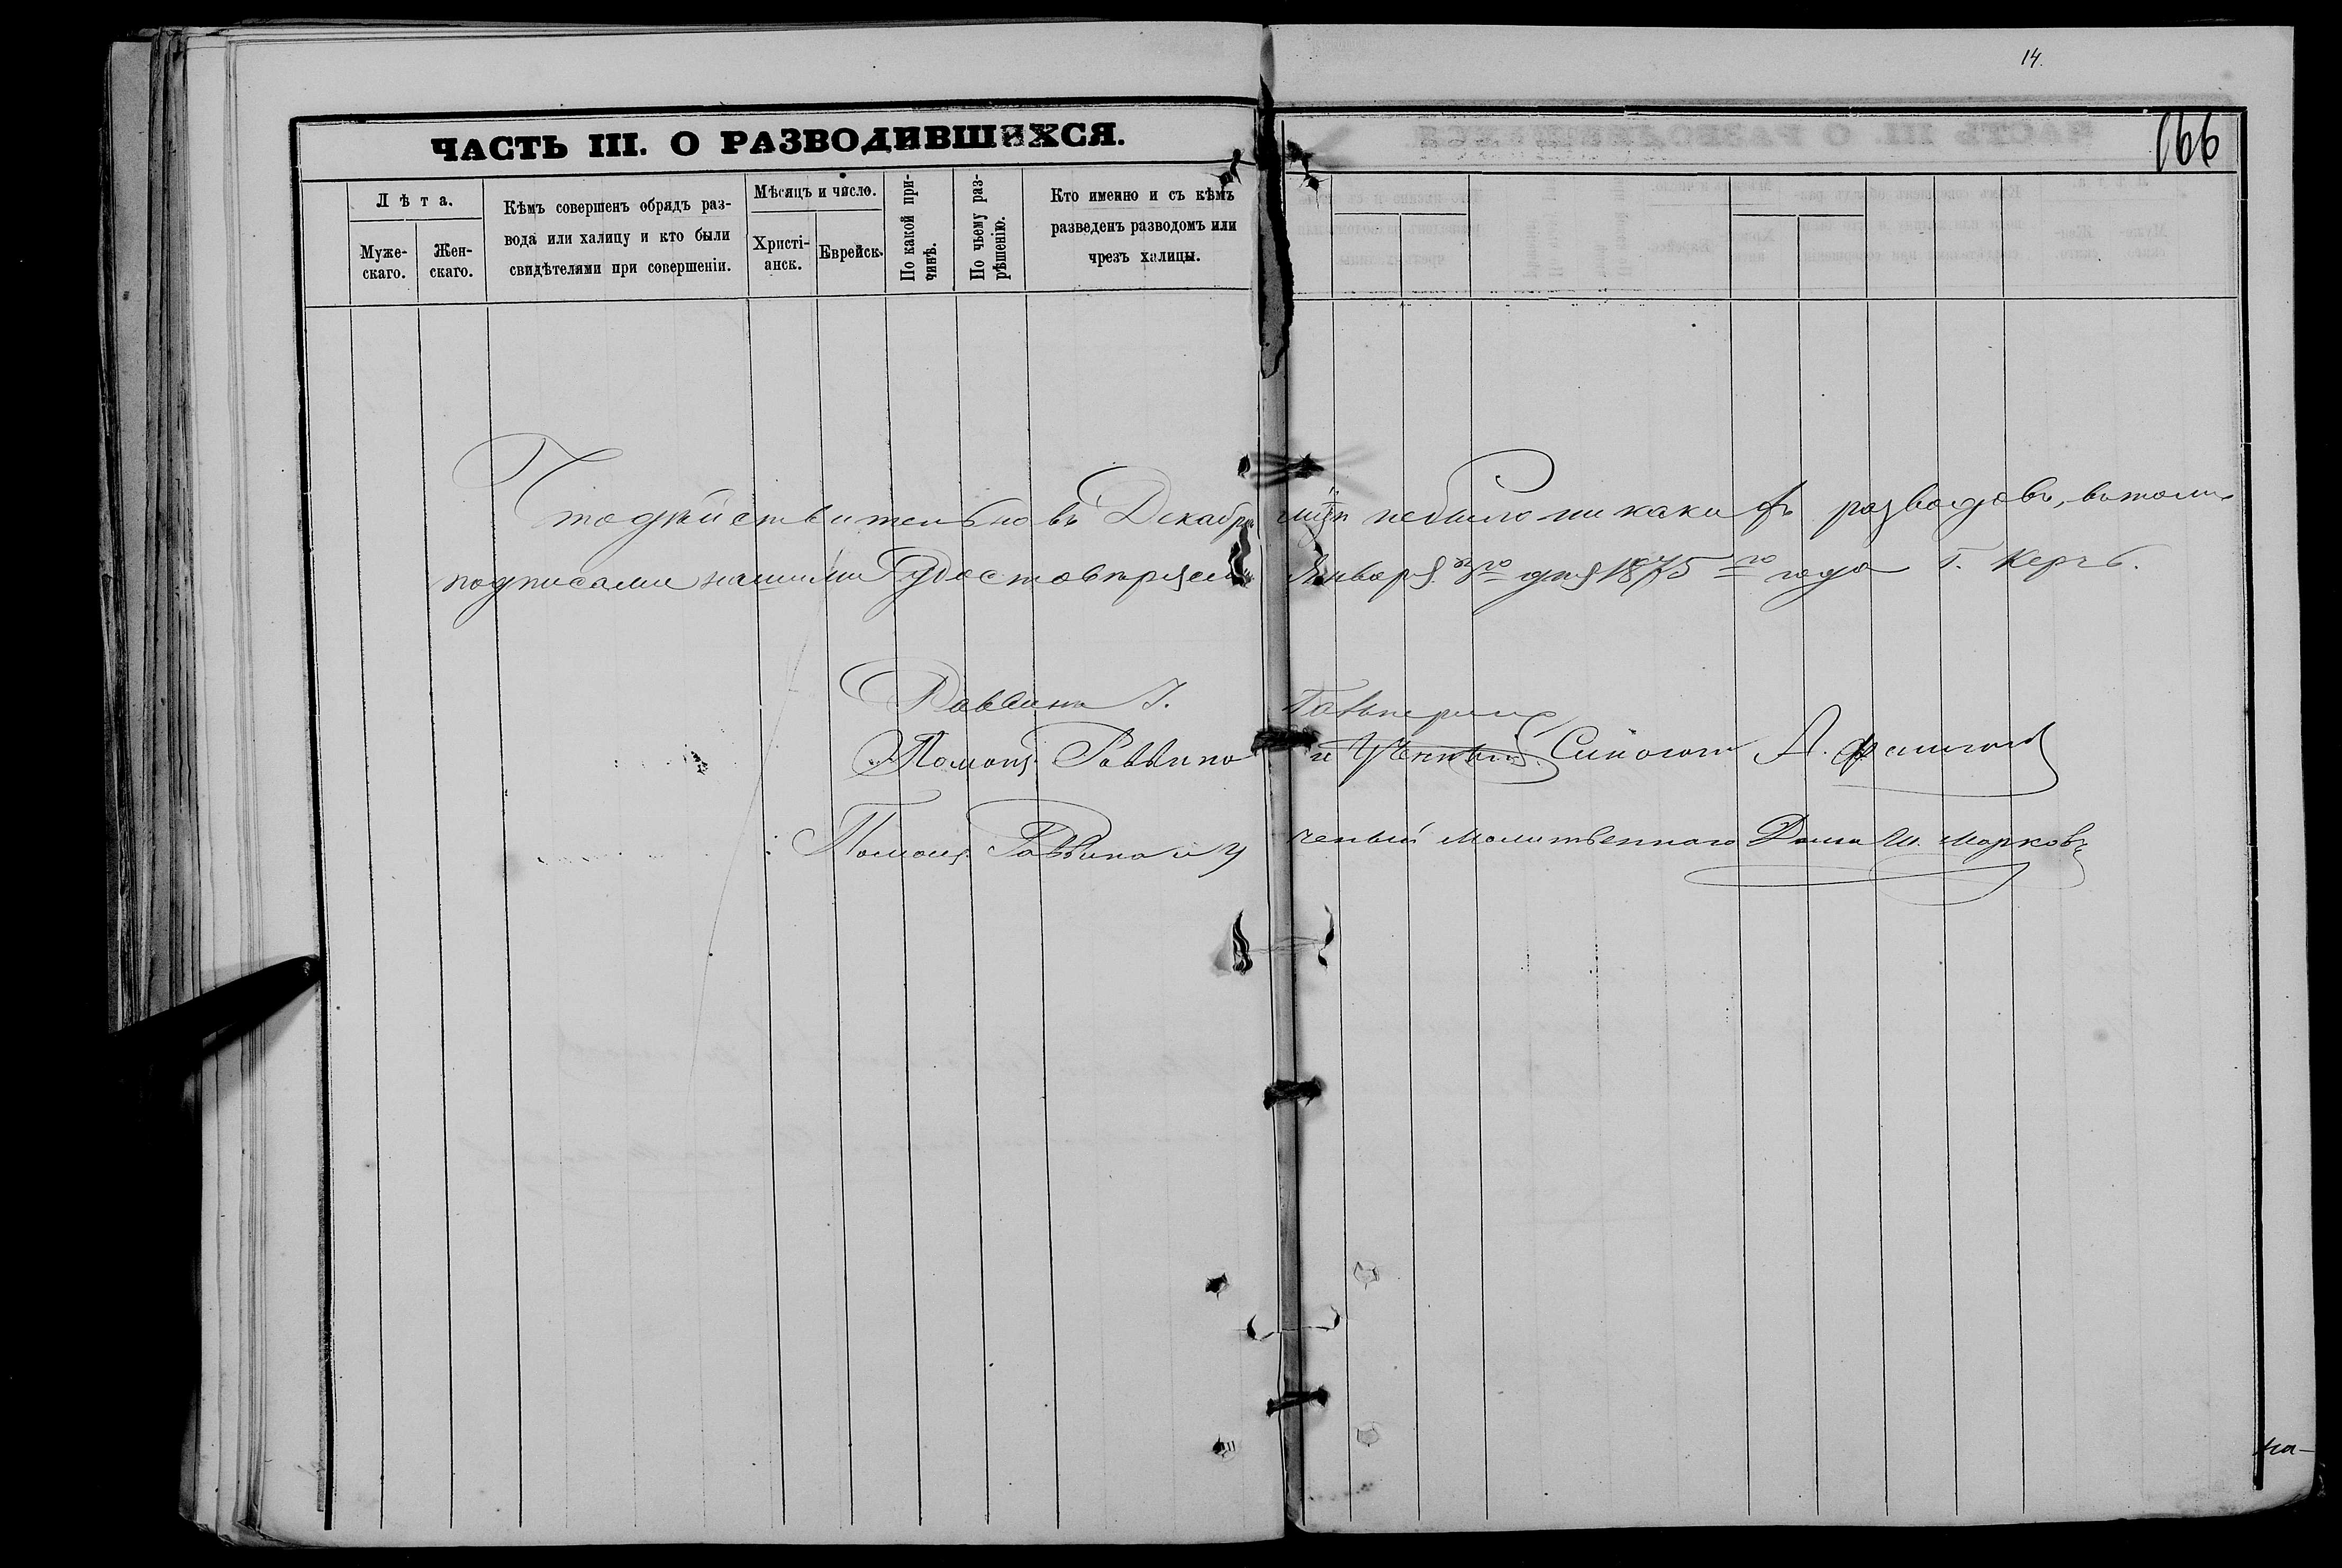 14.
166
ЧАСТЬ III. О РАЗВОДИВШИХСЯ.
Лѣта.
Муже-
скаго.
Жен-
скаго.
Кѣмъ совершенъ обрядъ раз-
вода или халицу и кто были
свидѣтелями при совершеніи.
Мѣсяцъ и число.
Христі-
анск.
Еврейск.
По какой при-
чинѣ.
По чьему раз-
рѣшенію.
Кто именно и съ кѣмъ
разведенъ разводомъ или
чрезъ халицы.
Что дѣйствительно въ Декабрѣ м-цѣ небыло никакихъ разводовъ, въ томъ
подписами нашими удостовѣряемъ Января 3го дня 1875го года Г. Керчь.
Раввинъ I.
Помощ. Раввина и Ученный Синогоги А.
Помощ. Раввина и Ученый Молитвеннаго Дома Ш. Марковъ
на-